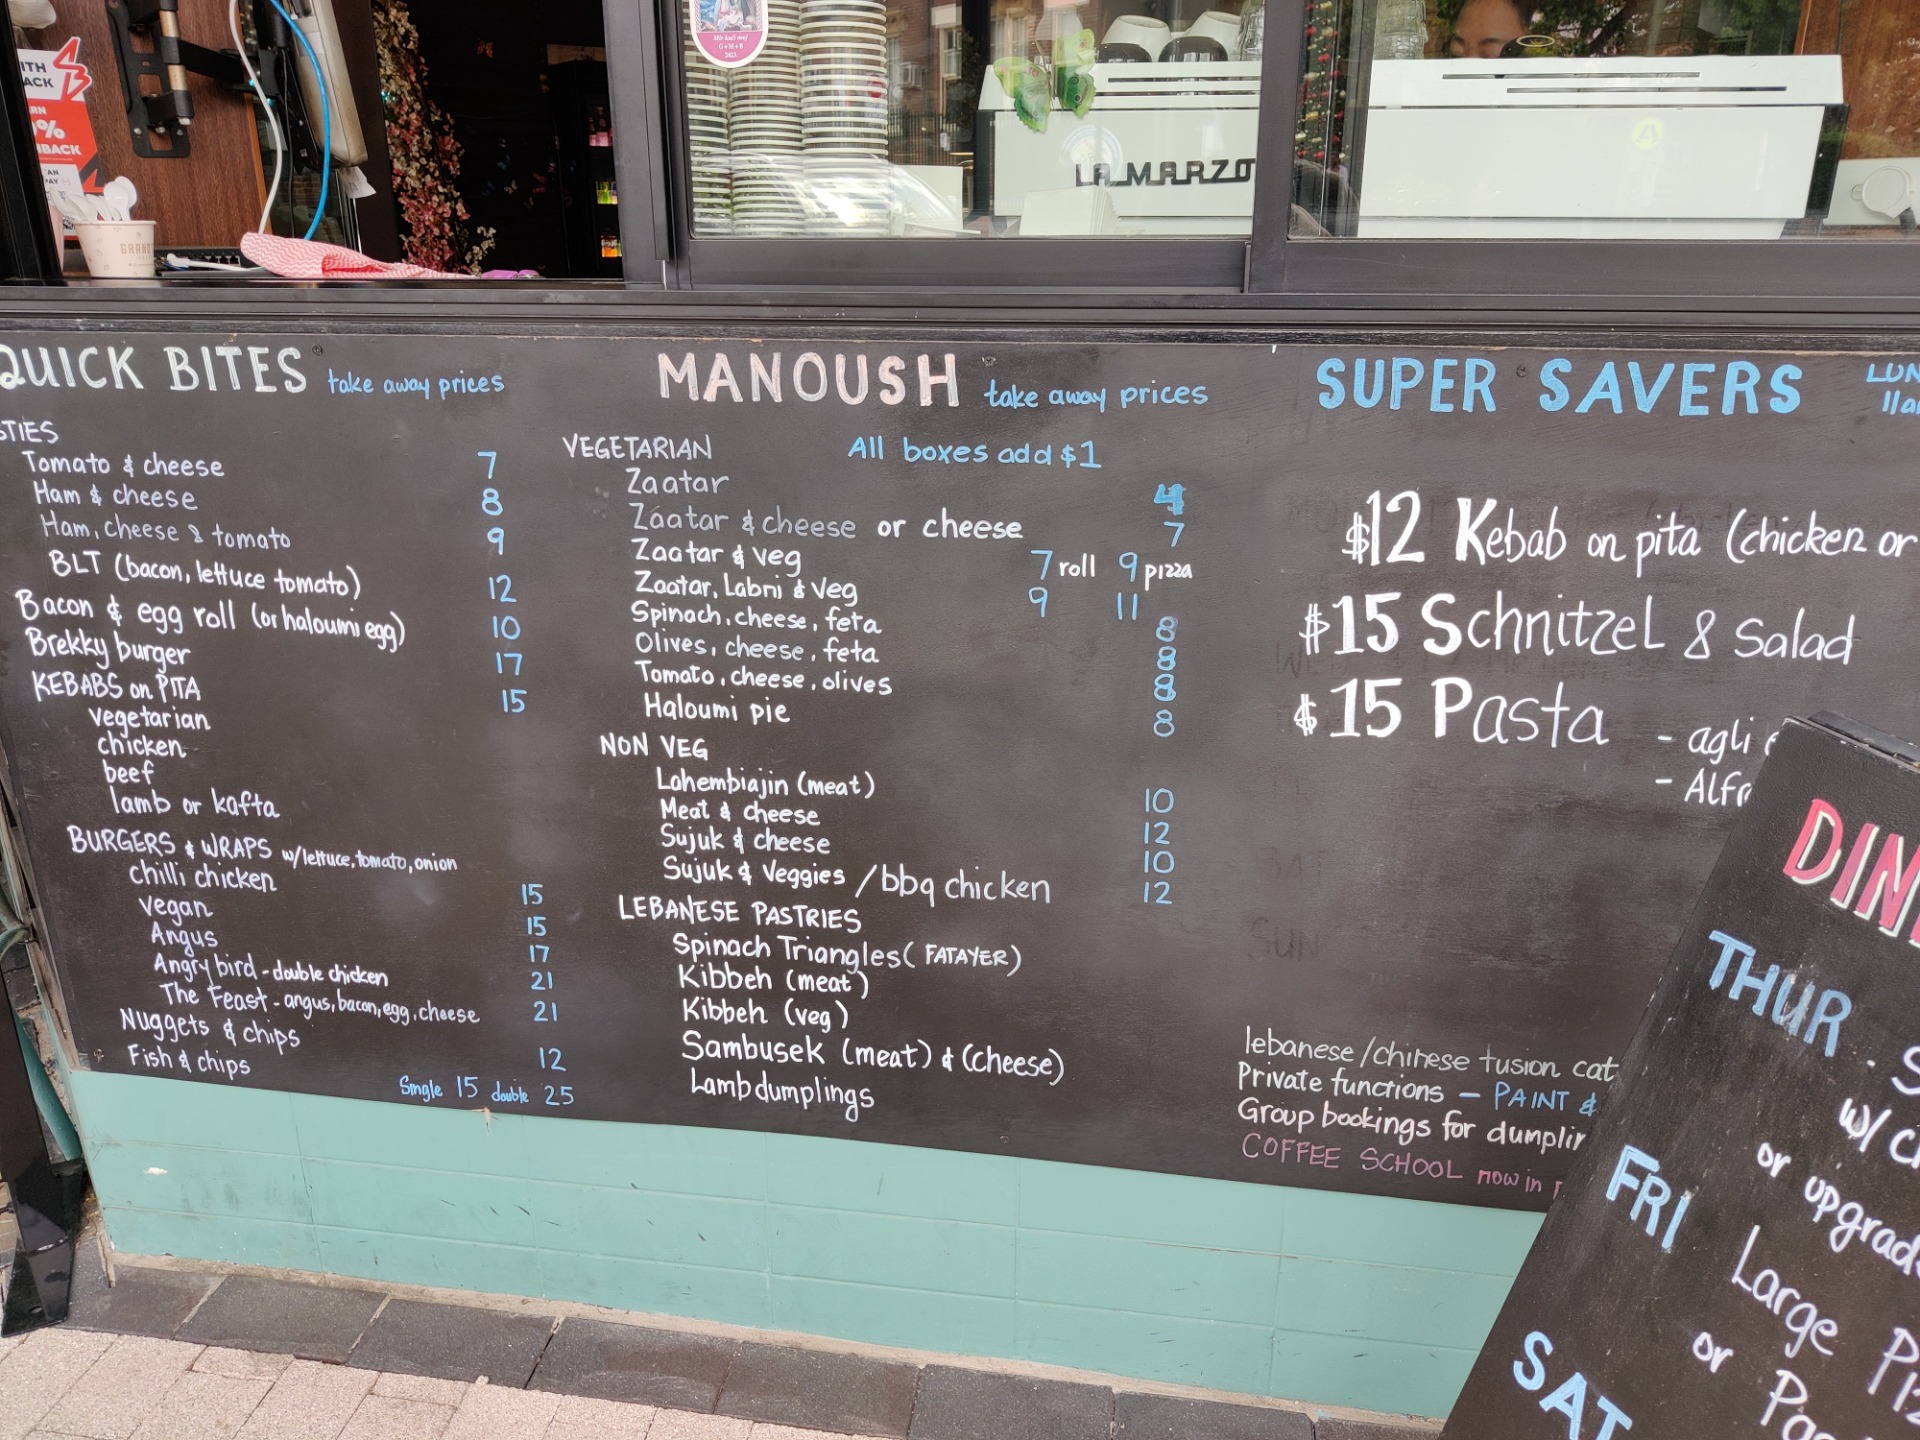 LA MARZO
QUICK BITES take away prices
Tomato & cheese 7
Ham & cheese 8
Ham, cheese & tomato 9
BLT (bacon, lettuce tomato) 12
Bacon & egg roll (or haloumi egg) 10
Brekky burger 17
KEBABS on PITA 15
vegetarian
chicken
beef
lamb or kafta
BURGERS & WRAPS w/lettuce, tomato, onion
chilli chicken 15
vegan 15
Angus 17
Angry bird - double chicken 21
The Feast - angus, bacon, egg, cheese 21
Nuggets & chips 12
Fish & chips
Single 15 double 25
MANOUSH take away prices
VEGETARIAN All boxes add $1
Zaatar 4
Zaatar & cheese or cheese 7
Zaatar & veg 7 roll 9 pizza
Zaatar, Labni & veg 9 11
Spinach, cheese, feta 8
Olives, cheese, feta 8
Tomato, cheese, olives 8
Haloumi pie 8
NON VEG
Lahembiajin (meat) 10
Meat & cheese 12
Sujuk & cheese 10
Sujuk & Veggies / bbq chicken 12
LEBANESE PASTRIES
Spinach Triangles (FATAYER)
Kibbeh (meat)
Kibbeh (veg)
Sambusek (meat) & (cheese)
Lamb dumplings
SUPER SAVERS
$12 Kebab on pita (chicken or
$15 Schnitzel & Salad
$15 Pasta - agli
- Alfr
SUN
lebanese/chinese fusion cat
Private functions - PAINT &
Group bookings for dumplin
COFFEE SCHOOL now in
DIN
THUR - S
w/ c
or upgrad
FRI Large Piz
or Pas
SAT